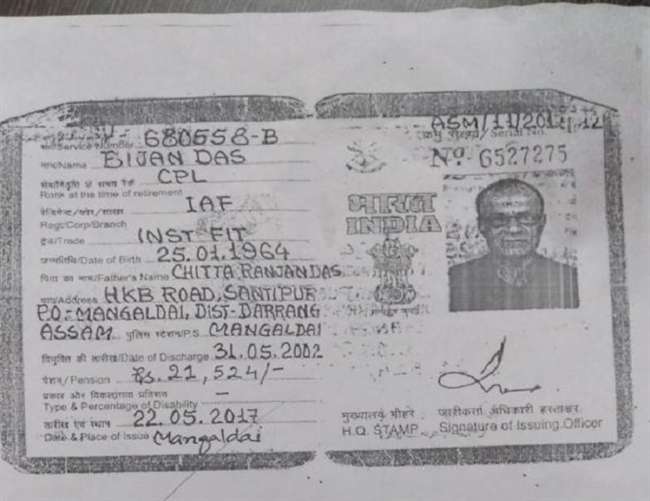 Service Number 680558-B
नाम/Name BIJAN DAS
CPL
Rank at the time of retirement
IAF
Regt/Corp/Branch
ट्रेड/Trade INST FIT
जन्मतिथि/Date of Birth 25.01.1964
पिता का नाम/Father's Name CHITTA RANJAN DAS
पता/Address HKB ROAD, SANTIPUR
P.O-MANGALDAI, DIST-DARRANG
ASSAM पुलिस स्टेशन/P.S. MANGALDAI
नियुक्ति की तारीख/Date of Discharge 31.05.2002
पेंशन/Pension Rs. 21,524/-
Type & Percentage of Disability -
तारीख एवं स्थान 22.05.2017
Date & Place of Issue Mangaldai
Serial No.
No 6527275
भारत
INDIA
मुख्यालय मोहर
H.Q. STAMP
जारीकर्ता अधिकारी हस्ताक्षर
Signature of Issuing Officer